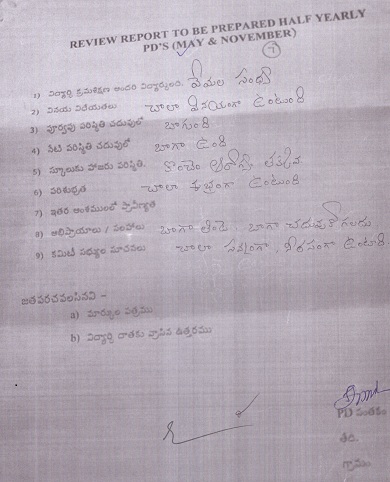 REVIEW REPORT TO BE PREPARED HALF YEARLY
PD'S (MAY & NOVEMBER)
7
1) విద్యార్థి క్రమశిక్షణ అందరి విద్యార్థులలో వేముల సంధ్య
2) వినయ విధేయతలు చాలా వినయంగా ఉంటుంది
3) పూర్వపు పరిస్థితి చదువులో బాగుంది
4) నేటి పరిస్థితి చదువులో బాగా ఉంది
5) స్కూలుకు హాజరు పరిస్థితి. కొంచెం ఆరోగ్య తక్కువ
6) పరిశుభ్రత చాలా శుభ్రంగా ఉంటుంది
7) ఇతర అంశములలో ప్రావీణ్యత
8) అభిప్రాయాలు / సలహాలు బాగా చదువుకోగలదు
9) కమిటీ సభ్యుల సూచనలు చాలా ఉంటుంది
జతపరచవలసినవి -
a) మార్కుల పత్రము
b) విద్యార్థి దాతకు వ్రాసిన ఉత్తరము
PD సంతకం
తేది.
గ్రామం